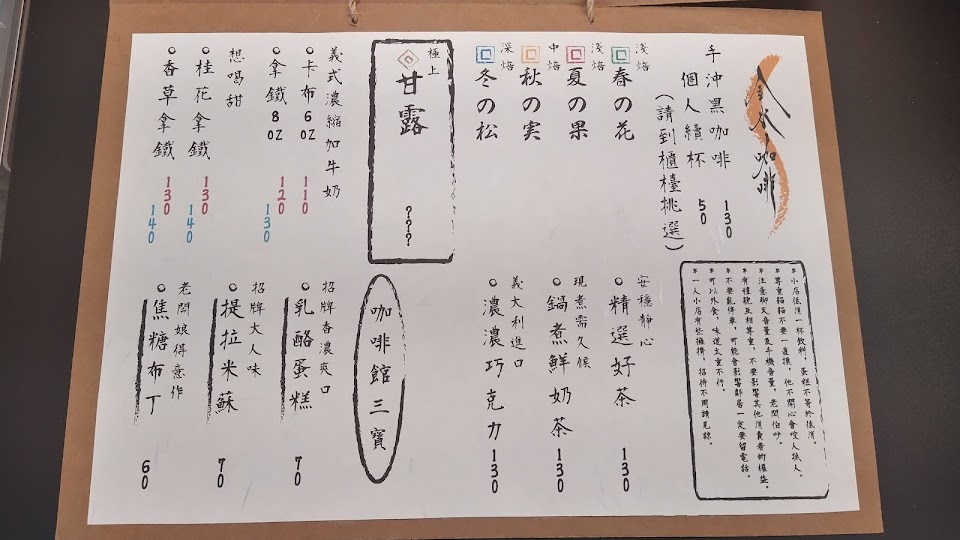 水咖啡
手沖黑咖啡 130
個人續杯 50
(請到櫃檯挑選)
淺焙
春の花
淺焙
夏の果
中焙
秋の実
深焙
冬の松
極上
甘露 ???
義式濃縮加牛奶
卡布 6oz 110
拿鐵 8oz 120 130
想喝甜
桂花拿鐵 130 140
香草拿鐵 130 140
小店低消一杯飲料，蛋糕不等於低消。
尊重貓貓不要一直摸，他不開心會咬人抓人。
注意聊天音量及手機音量，老闆怕吵。
有禮貌互相尊重，不要影響其他消費者的權益。
不要亂停車，可能會影響鄰居一定要留電話。
可以外食，味道太重不行。
一人小店有些擁擠，招待不周請見諒。
安穩靜心
精選好茶 130
現煮需久候
鍋煮鮮奶茶 130
義大利進口
濃濃巧克力 130
咖啡館三寶
招牌香濃爽口
乳酪蛋糕 70
招牌大人味
提拉米蘇 70
老闆娘得意作
焦糖布丁 60